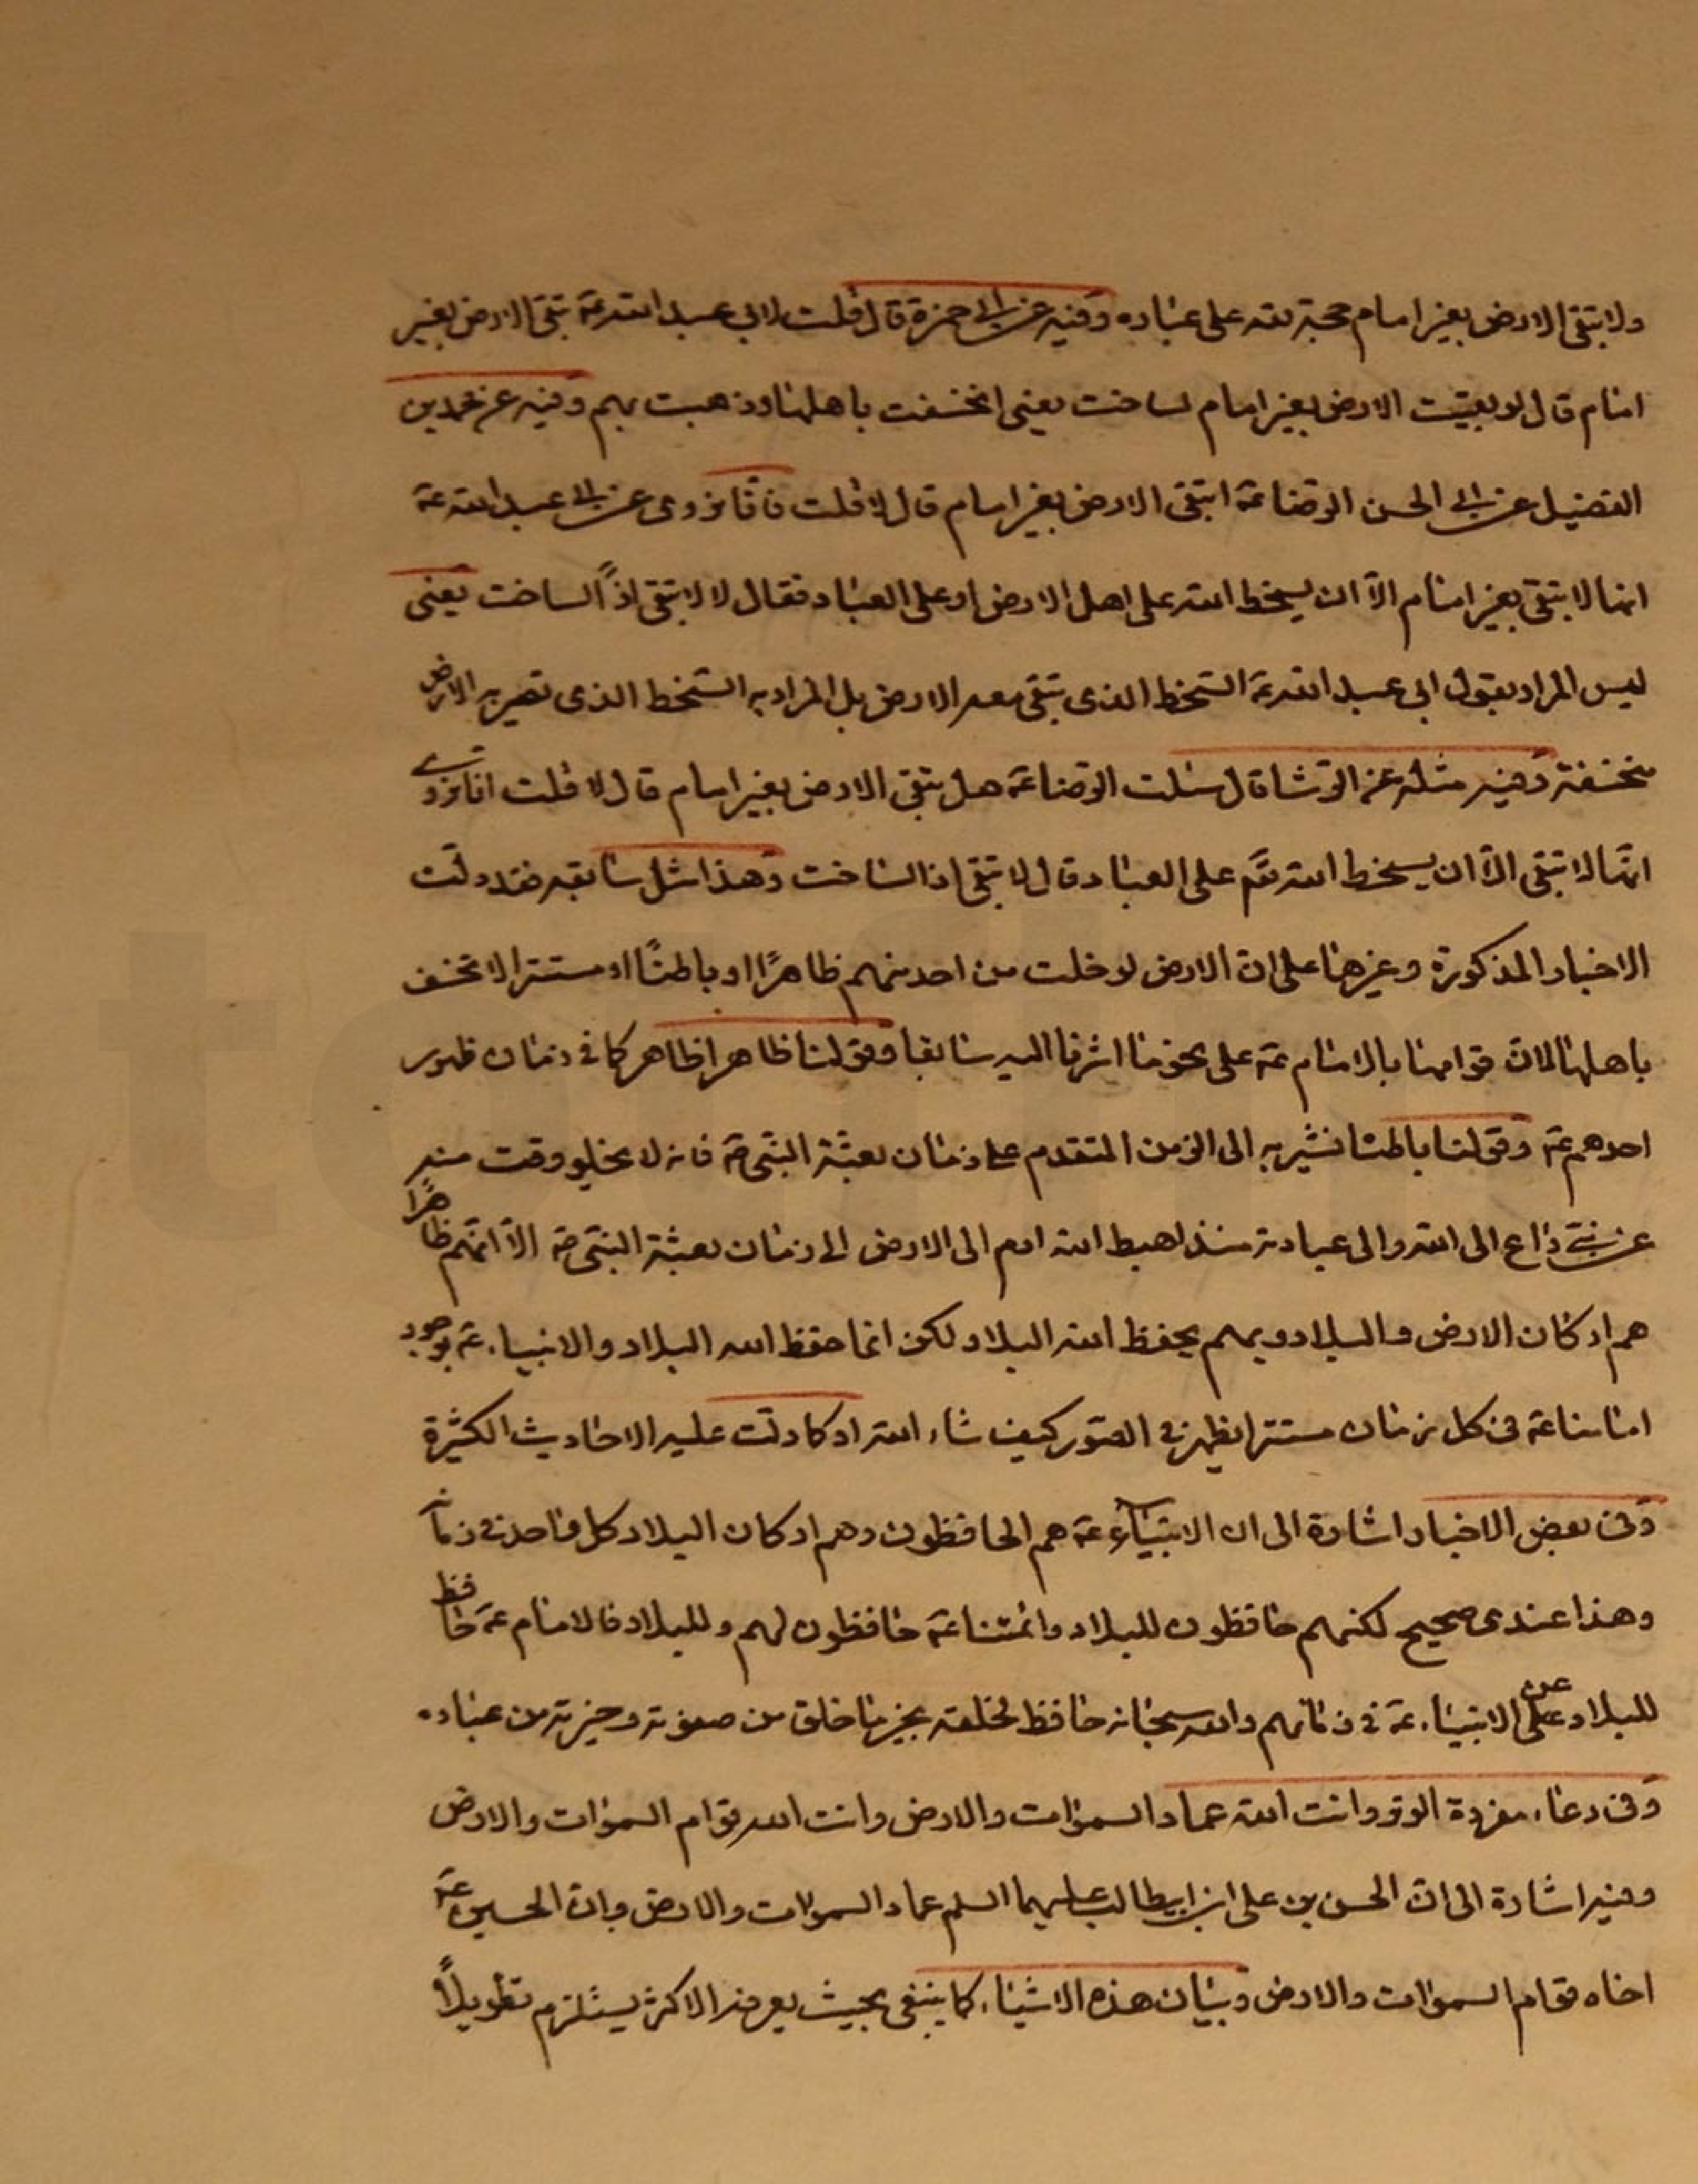 ولا تبقى الارض بغير امام حجة لله على عباده وفيه عن ابي حمزة قال قلت لابي عبد الله عۤ تبقى الارض بغير
امام قال لو بقيت الارض بغير امام لساخت يعني انخسفت باهلها وذهبت بهم وفيه عن محمد بن
الفضيل عن ابي الحسن الرضا عۤ اتبقى الارض بغير امام قال لا قلت فانا نروى عن ابي عبد الله عۤ
انها لا تبقى بغير امام الا ان يسخط الله على اهل الارض او على العباد فقال لا لا تبقى اذاً لساخت يعنى
ليس المراد بقول ابي عبد الله عۤ السخط الذى تبقى معه الارض بل المراد به السخط الذى تصير به الارض
منخسفة وفيه مثله عن الوشا قال سئلت الرضا عۤ هل تبقى الارض بغير امام قال لا قلت انا نروى
انها لا تبقى الا ان يسخط الله على العباد قال لا تبقى اذا لساخت وهذا مثل سابقه فقد دلت
الاخبار المذكورة وغيرها على ان الارض لو خلت من احد منهم ظاهرًا او باطنًا او مستترا لانخسف
باهلها لان قوامها بالامام عۤ على نحو ما اشرنا اليه سابقا وقولنا ظاهرا ظاهر كما في زمان ظهور
احدهم عۤ وقولنا باطنا نشير به الى الزمن المتقدم على زمان بعثة النبي صۤ فانه لا يخلو وقت منه
عن نبي داع الى الله والى عبادته منذ اهبط الله ادم الى الارض الى زمان بعثة النبي صۤ الا انهم ظاهرًا
هم اركان الارض والبلاد وبهم يحفظ الله البلاد لكن انما حفظ الله البلاد والانبياء عۤ بوجود
امامنا عۤ في كل زمان مستترا يظهر في الصور كيف شاء الله كما دلت عليه الاحاديث الكثيرة
وفى بعض الاخبار اشارة الى ان الانبياء عۤ هم الحافظون وهم اركان البلاد كل واحد في زمانه
وهذا عندى صحيح لكنهم حافظون للبلاد وائمتنا عۤ حافظون لهم وللبلاد فالامام عۤ حافظ
للبلاد على الانبياء عۤ في زمانهم والله سبحانه حافظ لخلقه بخير ما خلق من صفوته وخيرته من عباده
وفى دعاء مفردة الوتر وانت الله عماد السموات والارض وانت الله قوام السموات والارض
وفيه اشارة الى ان الحسن بن على ابن ابيطالب عليهما السلم عماد السموات والارض وان الحسين عۤ
اخاه قوام السموات والارض وبيان هذه الاشياء كما ينبغى بحيث يعرفه الاكثر يستلزم تطويلًا